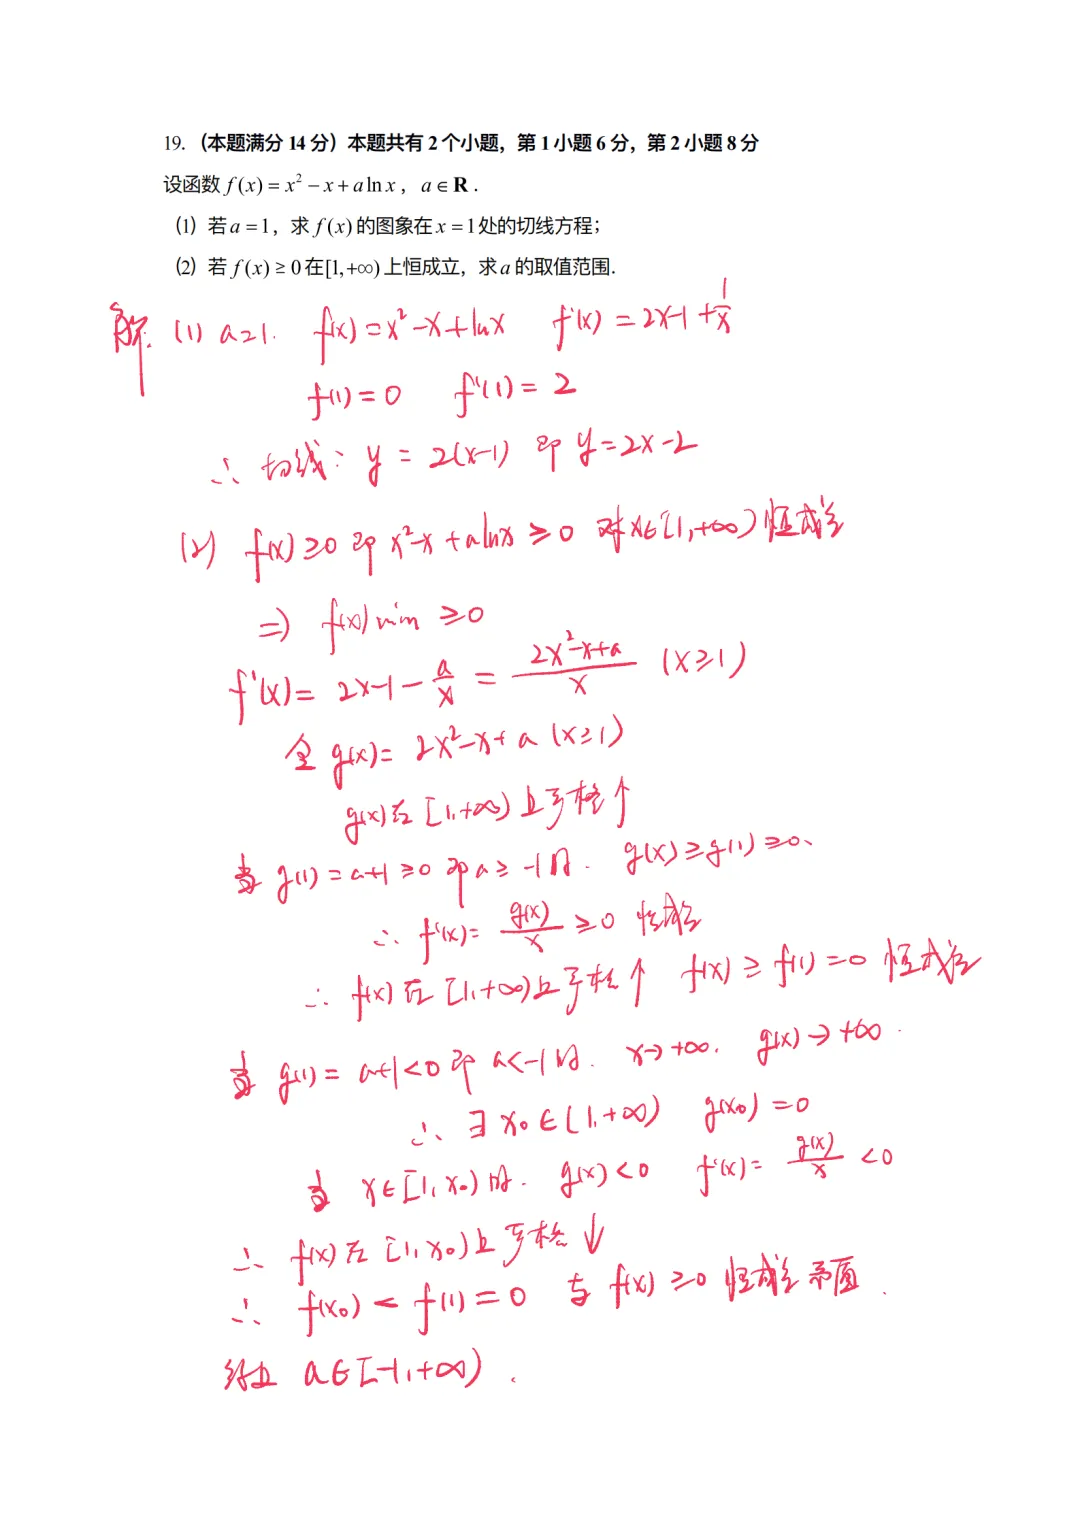 19.（本题满分 14 分）本题共有 2 个小题，第 1 小题 6 分，第 2 小题 8 分
设函数 f(x) = x² − x + a ln x，a ∈ R．
（1）若 a = 1，求 f(x) 的图象在 x = 1 处的切线方程；
（2）若 f(x) ≥ 0 在[1,+∞) 上恒成立，求 a 的取值范围.
解: (1) a=1. f(x)=x²-x+lnx f'(x)=2x-1+1/x
f(1)=0 f'(1)=2
∴ 切线: y=2(x-1) 即 y=2x-2
(2) f(x)≥0 即 x²-x+alnx≥0 对x∈[1,+∞)恒成立
⇒ f(x)min ≥0
f'(x)= 2x-1-a/x = (2x²-x+a)/x (x≥1)
令 g(x)= 2x²-x+a (x≥1)
g(x)在[1,+∞)上严格↑
当 g(1)=a+1≥0 即a≥-1时. g(x)≥g(1)≥0、
∴ f'(x)= g(x)/x ≥0 恒成立
∴ f(x)在[1,+∞)上严格↑ f(x)≥f(1)=0 恒成立
当 g(1)= a+1<0 即 a<-1时. x→+∞. g(x)→+∞.
∴ ∃ x₀∈(1,+∞) g(x₀)=0
当 x∈[1,x₀)时. g(x)<0 f'(x)= g(x)/x <0
∴ f(x)在[1,x₀)上严格↓
∴ f(x₀)<f(1)=0 与 f(x)≥0 恒成立矛盾.
综上 a∈[-1,+∞).